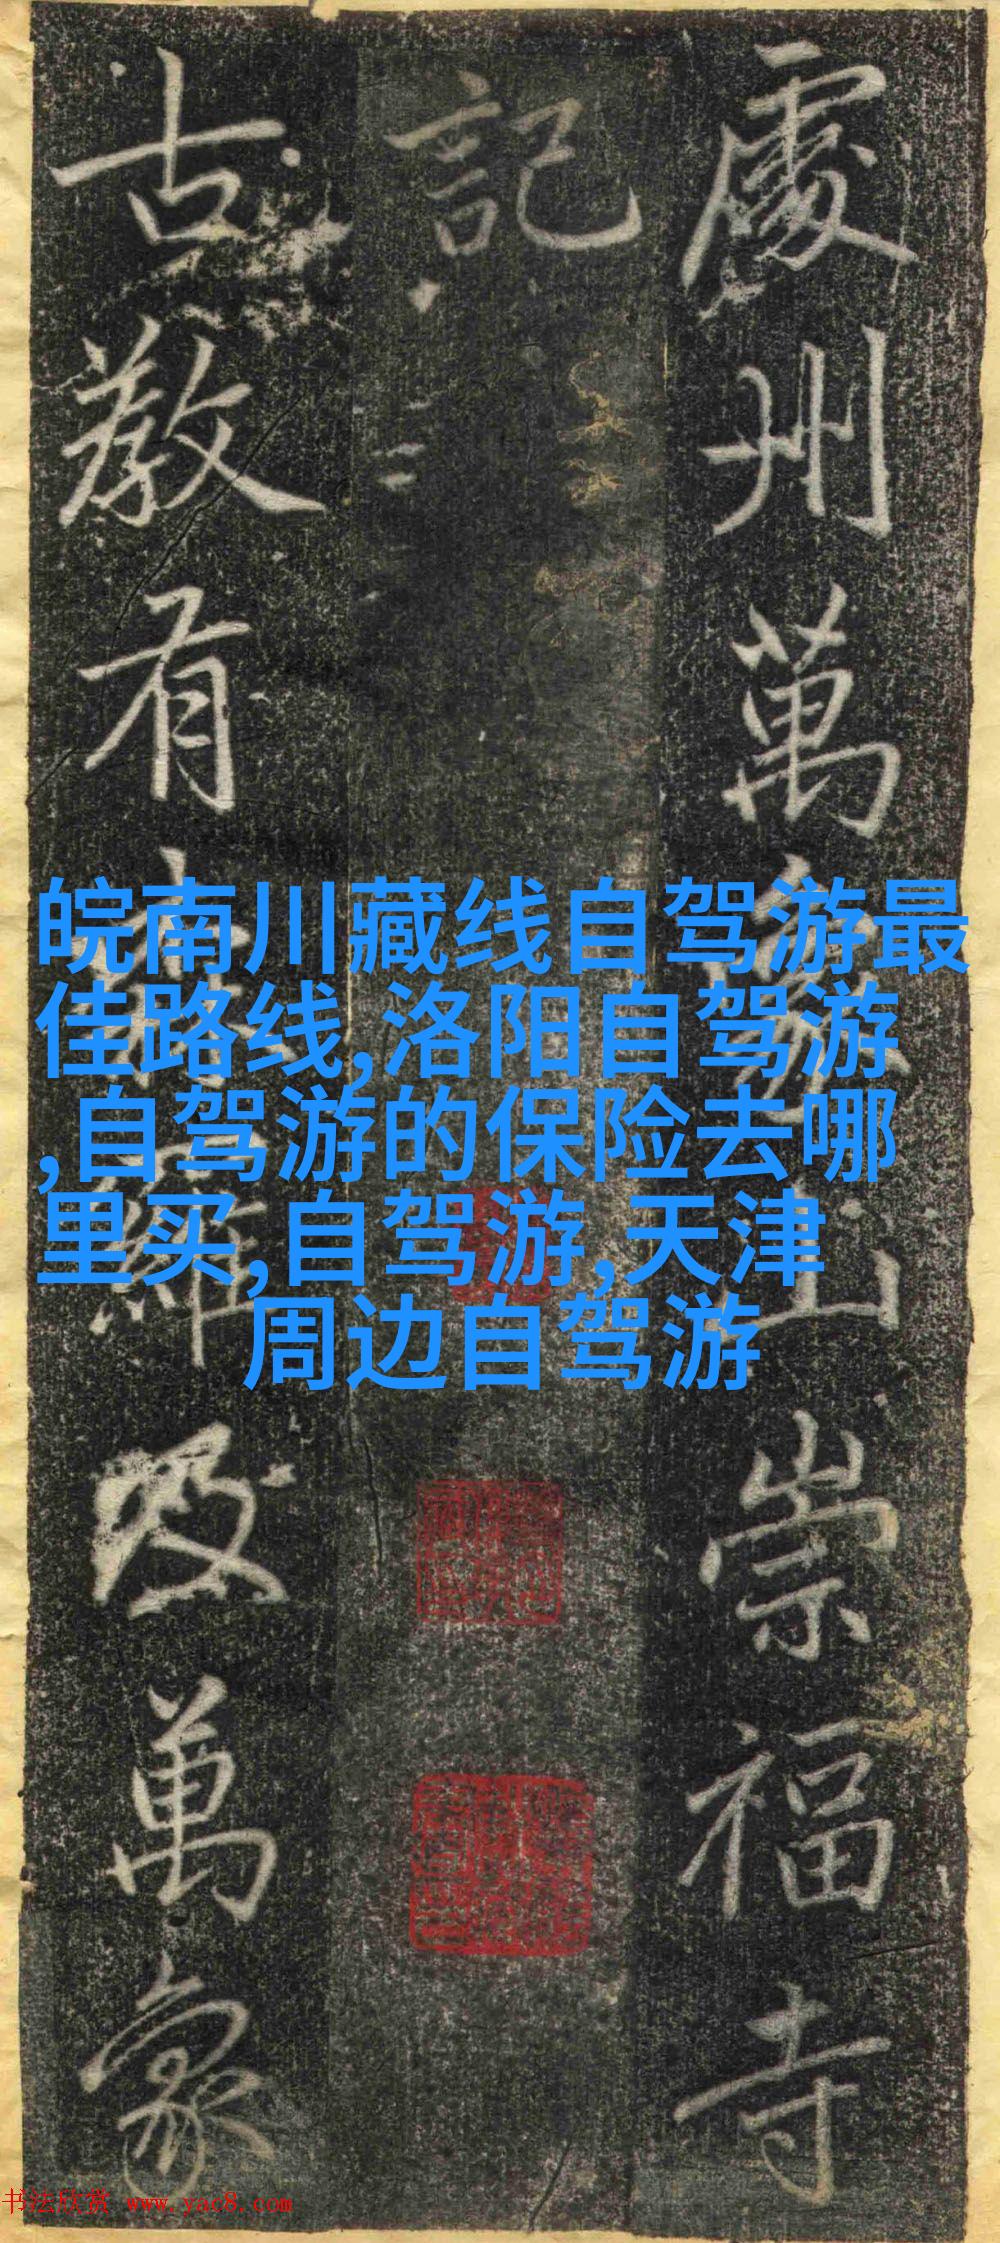 處州萬象山崇福寺
記
古教有
及萬象
皖南川藏线自驾游最
佳路线,洛阳自驾游
,自驾游的保险去哪
里买,自驾游,天津
周边自驾游
书法欣赏 www.yac8.com